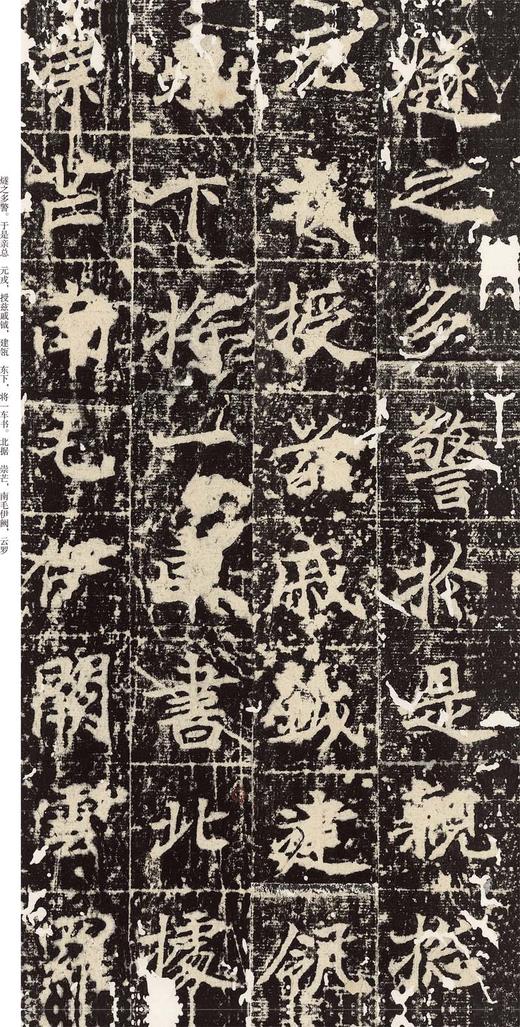 燧之多警於是親揔
元戎授茲戚鉞建瓴
東下將一車書北據
崇芒南毛伊闕雲羅
燧之多警。于是亲总 元戎,授兹戚钺,建瓴 东下,将一车书。北据 崇芒,南毛伊阙,云罗